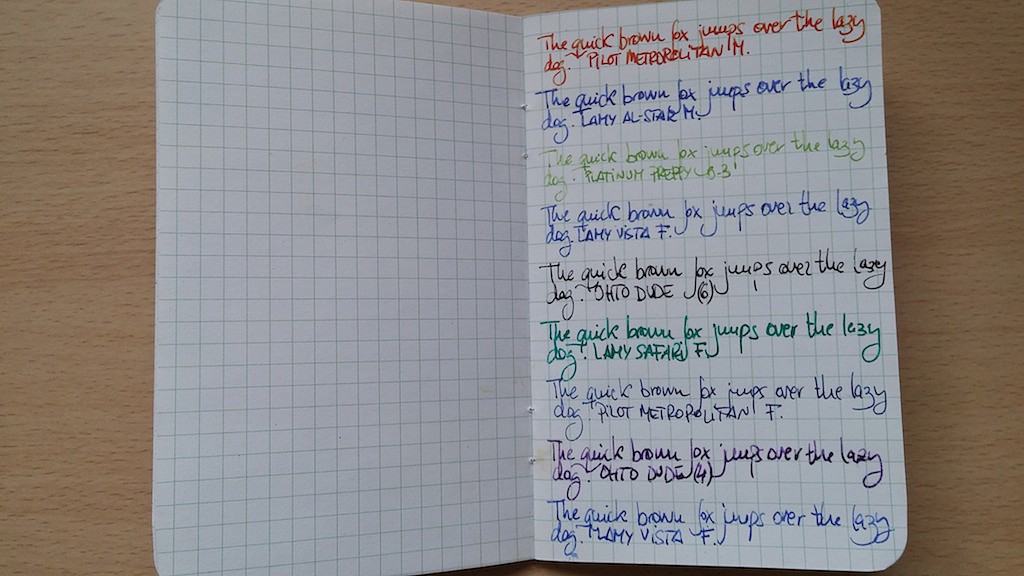 The quick brown fox jumps over the lazy
dog. PILOT METROPOLITAN M.
The quick brown fox jumps over the lazy
dog. LAMY AL-STAR M.
The quick brown fox jumps over the lazy
dog. PLATINUM PREPPY 0.3
The quick brown fox jumps over the lazy
dog. LAMY VISTA F.
The quick brown fox jumps over the lazy
dog. OHTO DUDE (6)
The quick brown fox jumps over the lazy
dog. LAMY SAFARI F.
The quick brown fox jumps over the lazy
dog. PILOT METROPOLITAN F.
The quick brown fox jumps over the lazy
dog. OHTO DUDE (4)
The quick brown fox jumps over the lazy
dog. LAMY VISTA F.